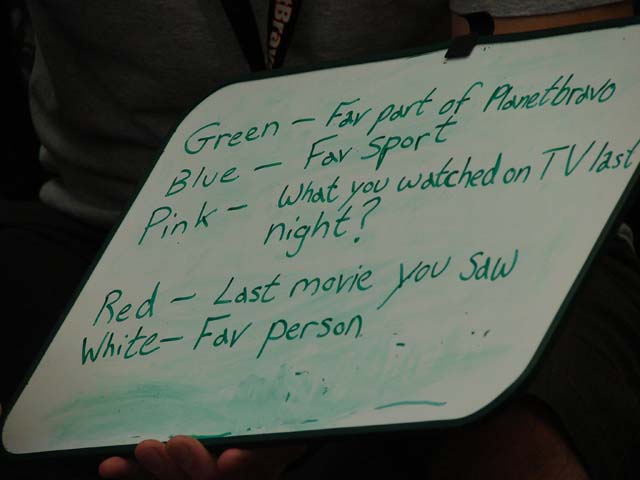 tBrav
Green - Fav part of Planetbravo
Blue - Fav sport
Pink - What you watched on TV last
night?
Red - Last movie you saw
White - Fav person